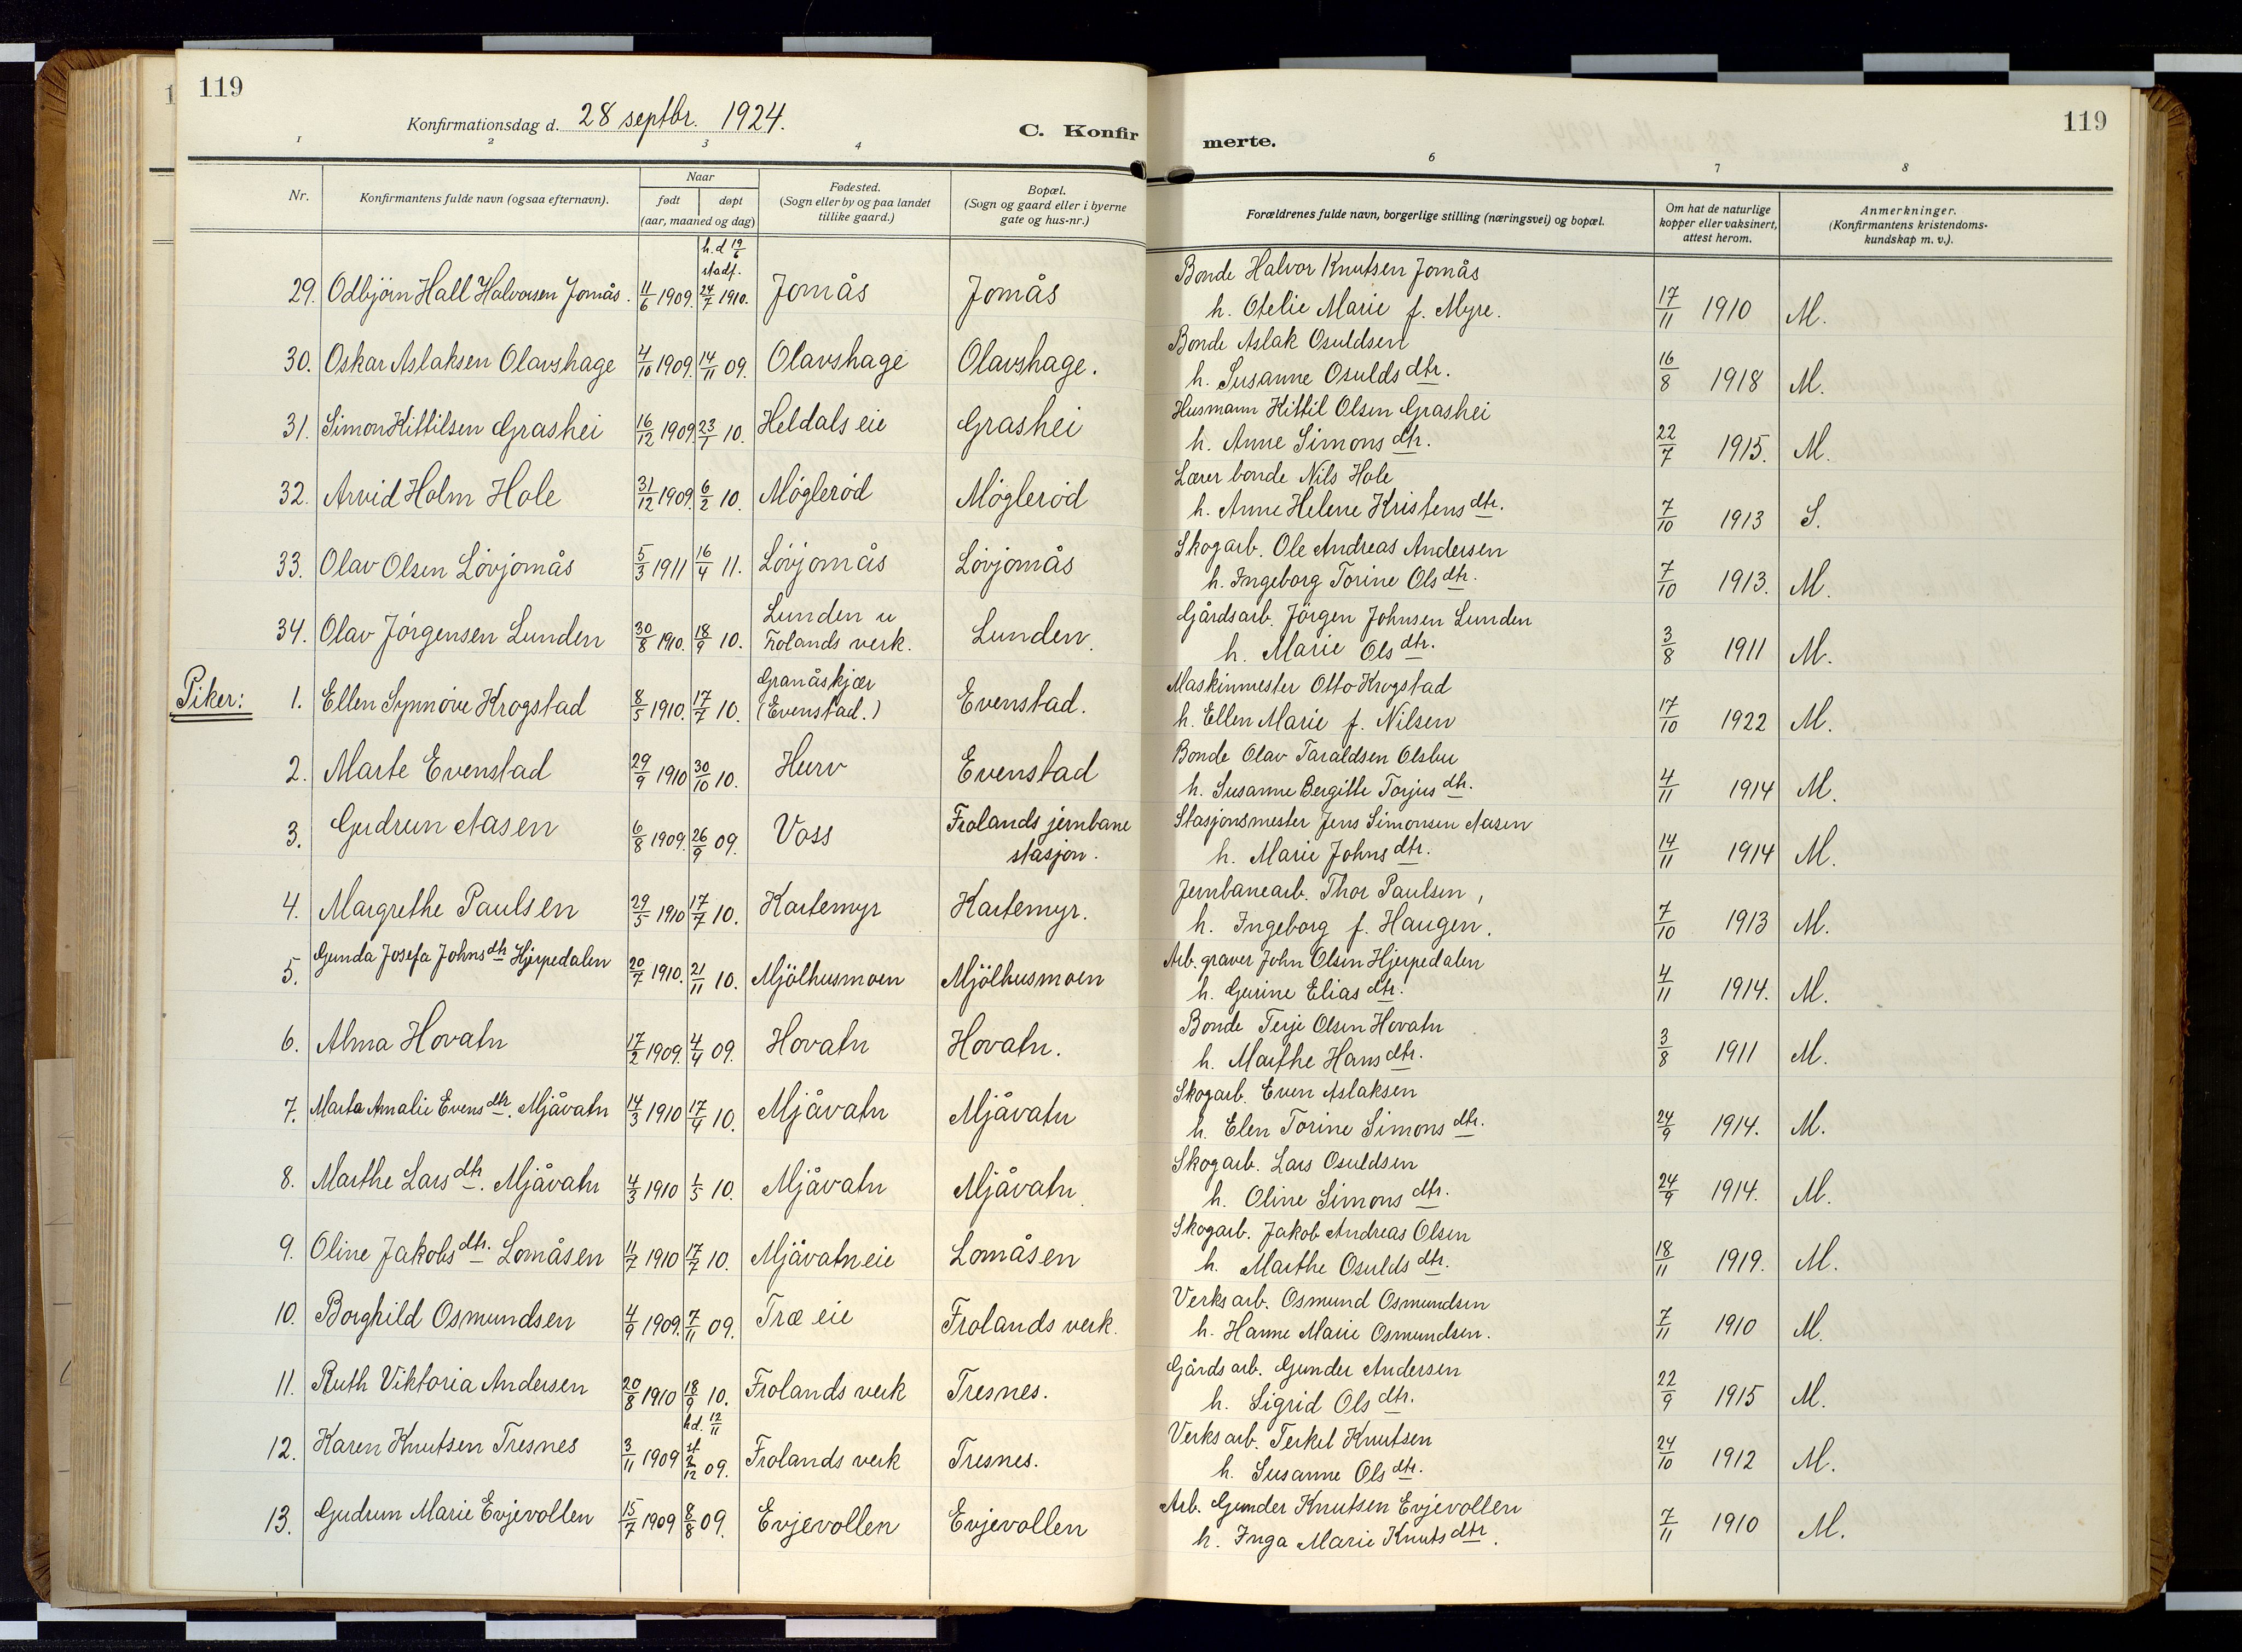 119
119
Konfirmationsdag d. 28 septbr. 1924.
C. Konfir
merte.
1 2 3 4 6 7 8
Nr.
Konfirmantens fulde navn (ogsaa efternavn).
Naar
født døpt
(aar, maaned og dag)
Fødested.
(Sogn eller by og paa landet
tillike gaard.)
Bopæl.
(Sogn og gaard eller i byerne
gate og hus-nr.)
Forældrenes fulde navn, borgerlige stilling (næringsvei) og bopæl.
Om hat de naturlige
kopper eller vaksinert,
attest herom.
Anmerkninger.
(Konfirmantens kristendoms-
kundskap m. v.).
h. d 19/6
stadf.
29. Odbjörn Hall Halvorsen Jomås. 11/6 1909. 24/7 1910. Jomås Jomås
Bonde Halvor Knutsen Jomås
h. Otelie Marie f. Myre. 17/11 1910 M.
30. Oskar Aslaksen Olavshage 4/10 1909. 14/11 09. Olavshage Olavshage.
Bonde Aslak Osuldsen
h. Susanne Osulds dtr. 16/8 1918 M.
31. Simon Kittilsen Grashei 16/12 1909 23/1 10. Heldals eie Grashei
Husmann Kittil Olsen Grashei
h. Anne Simons dtr. 22/7 1915. M.
32. Arvid Holm Hole 31/12 1909. 6/2 10. Mögleröd Mögleröd
Lærer bonde Nils Hole
h. Anne Helene Kristens dtr. 7/10 1913 S.
33. Olav Olsen Lövjomås 5/3 1911 16/4 11. Lövjomås Lövjomås
Skogarb. Ole Andreas Andersen
h. Ingeborg Torine Ols dtr. 7/10 1913. M.
34. Olav Jörgensen Lunden 30/8 1910. 18/9 10. Lunden u
Frolands verk. Lunden.
Gårdsarb. Jörgen Johnsen Lunden
h. Marie Ols dtr. 3/8 1911 M.
Piker:
1. Ellen Synnöve Krogstad 8/5 1910. 17/7 10. Granåskjær
(Evenstad.) Evenstad.
Maskinmester Otto Krogstad
h. Ellen Marie f. Nilsen 17/10 1922 M.
2. Marte Evenstad 29/9 1910 30/10 10. Hurv Evenstad
Bonde Olav Taraldsen Olsbu
h. Susanne Bergitte Torjus dtr. 4/11 1914 M.
3. Gudrun Aasen 6/8 1909. 26/9 09. Voss Frolands jernbane
stasjon.
Stasjonsmester Jens Simonsen Aasen
h. Marie Johns dtr. 14/11 1914 M.
4. Margrethe Paulsen 29/5 1910 17/7 10. Kartemyr Kartemyr.
Jernbanearb. Thor Paulsen,
h. Ingeborg f. Haugen. 7/10 1913 M.
5. Gunda Josefa Johns dtr Hjerpedalen 20/7 1910. 21/11 10. Mjölhusmoen Mjölhusmoen
Arb. graver John Olsen Hjerpedalen
h. Gurine Elias dtr. 4/11 1914. M.
6. Alma Hovatn 17/2 1909. 4/4 09. Hovatn Hovatn.
Bonde Terje Olsen Hovatn
h. Marthe Hans dtr. 3/8 1911 M.
7. Marta Amalie Evens dtr. Mjåvatn 14/3 1910 17/4 10. Mjåvatn Mjåvatn
Skogarb. Even Aslaksen
h. Elen Torine Simons dtr. 24/9 1914. M.
8. Marthe Lars dtr. Mjåvatn 4/3 1910 1/5 10. Mjåvatn Mjåvatn.
Skogarb. Lars Osuldsen
h. Oline Simons dtr. 24/9 1914. M.
9. Oline Jakobs dtr. Lomåsen 11/7 1910 17/7 10. Mjåvatn eie Lomåsen
Skogarb. Jakob Andreas Olsen
h. Marthe Osulds dtr. 18/11 1919. M.
10. Borghild Osmundsen 4/9 1909. 7/11 09. Træ eie Frolands verk.
Verksarb. Osmund Osmundsen
h. Hanne Marie Osmundsen. 7/11 1910 M.
11. Ruth Viktoria Andersen 20/8 1910 18/9 10. Frolands verk Tresnes.
Gårdsarb. Gunder Andersen
h. Sigrid Ols dtr. 22/9 1915 M.
hd. 12/11
12. Karen Knutsen Tresnes 3/11 1909 st 2/12 09. Frolands verk Tresnes.
Verksarb. Terkel Knutsen
h. Susanne Ols dtr. 24/10 1912 M.
13. Gudrun Marie Evjevollen 15/7 1909 8/8 09. Evjevollen Evjevollen
Arb. Gunder Knutsen Evjevollen
h. Inga Marie Knuts dtr. 7/11 1910 M.